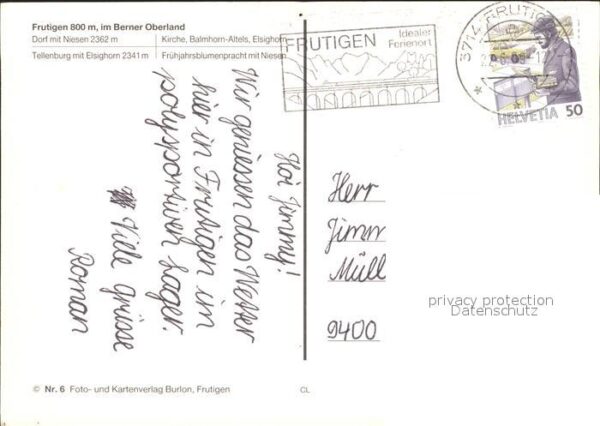 Frutigen 800 m, im Berner Oberland
Dorf mit Niesen 2362 m Kirche, Balmhorn-Altels, Elsighorn
Tellenburg mit Elsighorn 2341 m Frühjahrsblumenpracht mit Niesen
FRUTIGEN Idealer
Ferienort
3714 FRUTIGEN
HELVETIA 50
Hoi Jimmy!
Wir geniessen das Wetter
hier in Frutigen im
polysportiven Lager.
Viele grüsse
Roman
Herr
Jimm
Müll
9400
privacy protection
Datenschutz
© Nr. 6 Foto- und Kartenverlag Burlon, Frutigen
CL